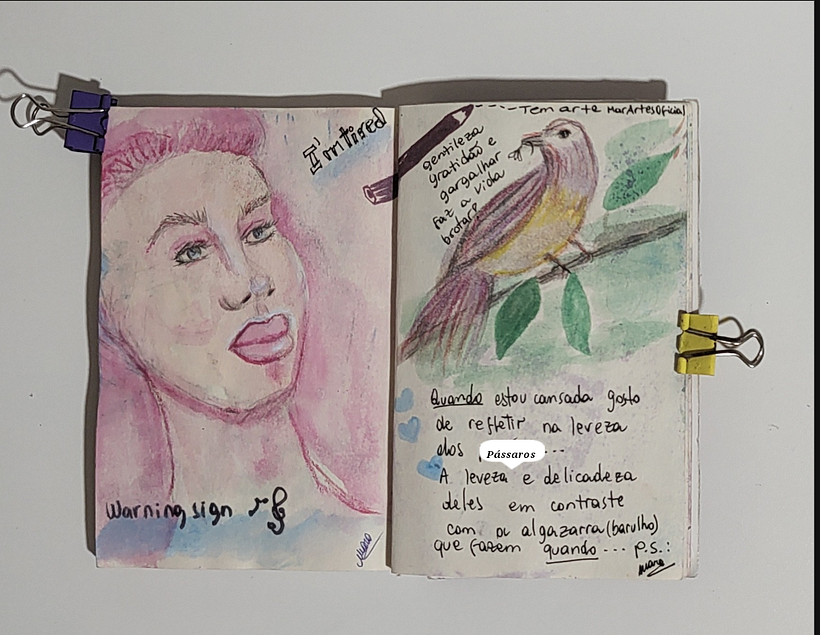 I'm tired
Warning sign
Tem arte MarArtesOficial
gentileza
gratidão e
gargalhar
faz a vida
brotar!
Quando estou cansada gosto
de refletir na leveza
dos Pássaros ...
A leveza e delicadeza
deles em contraste
com a algazarra (barulho)
que fazem quando ... P.S.: